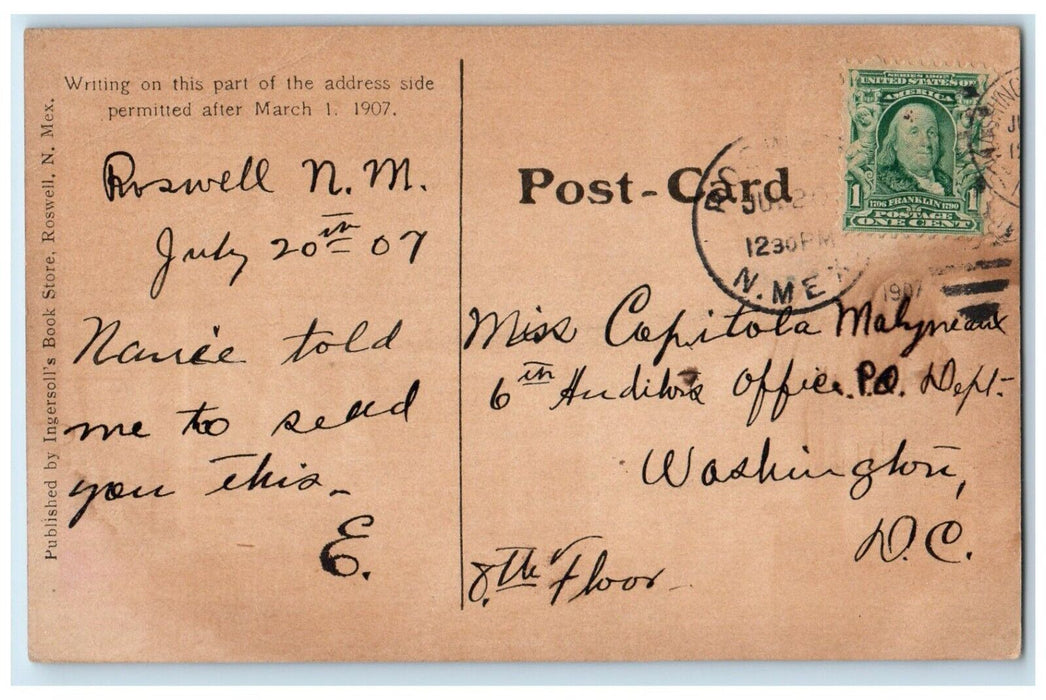 Writing on this part of the address side
permitted after March 1. 1907.
Published by Ingersoll's Book Store, Roswell, N. Mex.
Roswell N. M.
July 20th 07
Nanice told
me to send
you this.
E.
Post-Card
SERIES 1902
UNITED STATES OF
AMERICA
1 1
1706 FRANKLIN 1790
POSTAGE
ONE CENT
1230 PM
N. MEX
1907
Miss Capitola Malyneaux
6th Auditors Office. P.O. Dept.
Washington,
D.C.
8.th Floor